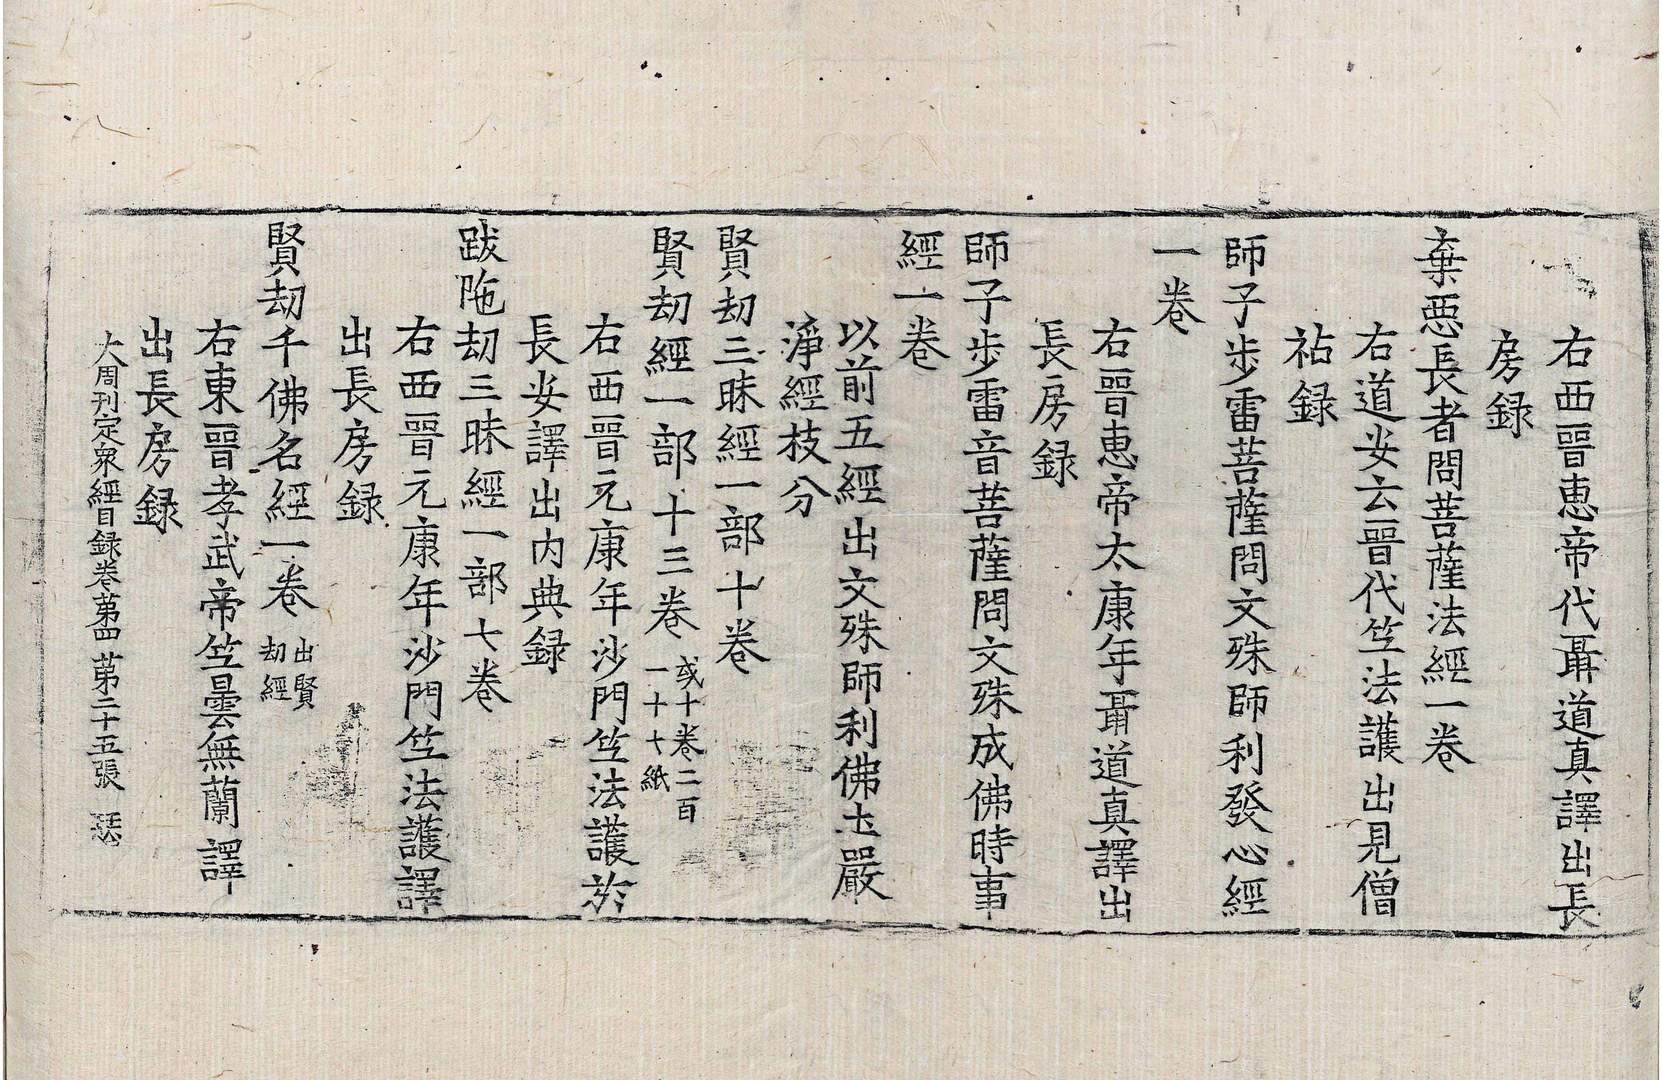 右西晉惠帝代聶道真譯出長
房録
棄惡長者問菩薩法經一卷
右道安云晉代竺法護出見僧
祐録
師子步雷菩薩問文殊師利發心經
一卷
右晉惠帝太康年聶道真譯出
長房録
師子步雷音菩薩問文殊成佛時事
經一卷
以前五經出文殊師利佛土嚴
淨經枝分
賢劫三昧經一部十卷
賢劫經一部十三卷或十卷二百
一十七紙
右西晉元康年沙門竺法護於
長安譯出内典録
跋陁劫三昧經一部七卷
右西晉元康年沙門竺法護譯
出長房録
賢劫千佛名經一卷出賢
劫經
右東晉孝武帝竺曇無蘭譯
出長房録
大周刊定衆經目録卷第四 第二十五張 瑟